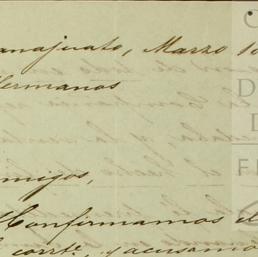 anajuato, Marzo 1
Hermanos
migos,
Confirmamos el
corrte. y acusamo